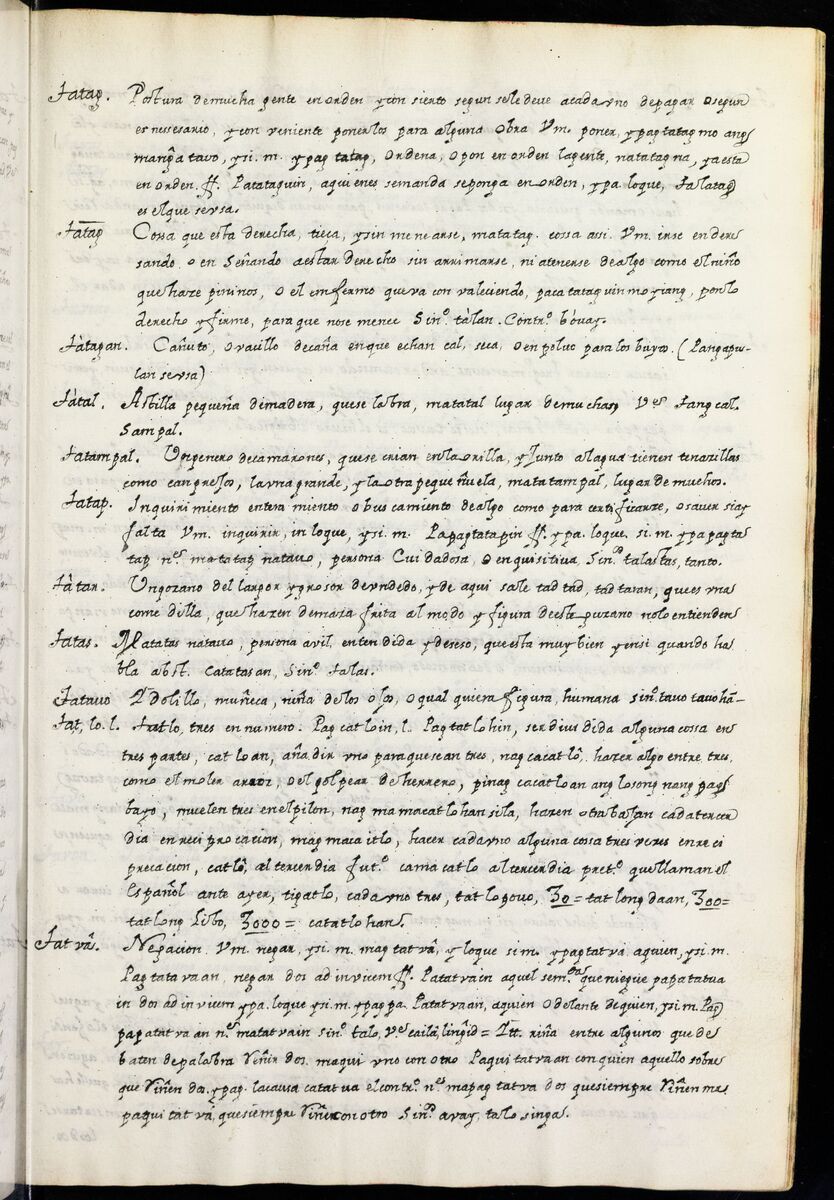 Tatag. Postura demucha gente en orden y con siento segun sele deve acada vno depagar o segun
es nessesario, y con veniente ponerlos para alguna obra Vm. poner, y pagtatag mo ang
manga tavo, ysi.m. ypag tatag, ordena, o pon en orden lagente, natatagna, yaesta
en orden. ff. Patataguin, aquienes semanda seponga en orden, ypa loque, Talatag
es elque sevsa.
Tatag Cossa que esta derecha, tieça, ysin menearse, matatag. cossa assi. Vm. irse endere
sando, o en señando aestar derecho sin arrimarse, ni atenerse dealgo como el niño
que haze pininos, o el enfermo que va con valeciendo, pacatataguin mo yiang, ponlo
derecho y firme, para que nose menee Sin.º tàlan. Contr.º bóvay.
Tàtagan. Cañuto, o vavillo decaña en que echan cal, seca, o en polvo para los buyos. (Pangapu-
lan sevsa)
Tàtal. Astilla pequeña demadera, quese labra, matatal lugar demuchas Ves Tangcal.
Sampal.
Tatampal. Ungenero decamarones, quese crian enla orilla, y Junto alagua tienen tenasillas
como cangrejos, lavna grande, y la otra peque ñuela, matatampal, lugar de muchos.
Tatap. Inquirimiento entera miento o bus camiento dealgo como para certificarze, o saver siay
falta Vm. inquirir, in loque, ysi.m. Papagtatapin ff. ypa. loque. si.m ypapagta
tap n.es matatap natavo, persona Cuidadosa, o enquisitiva, Sin.º talastas, tanto.
Tàtar. Ungozano del largor ygrosor deundedo, yde aqui sale tad tad, tad taran, que es vna
come dilla, que hazen demaza frita al modo y figura deeste guzano nolo entienden
Tatas. Matatas natavo, persona avil, entendida y deseso, que esta muy bien y ensi quando ha
bla abst. Catatasan, Sin.º talas.
Tatavo Idolillo, muñeca, niña delos ojos, o qual quiera figura, humana sin.º tavo tavohã-
Tat, lo. l. tatlo, tres en numero. Pag catloin, l. Pagtatlohin, ser dividida alguna cossa en
tres partes, catloan, aña dir vno paraquesean tres, nag cacatlô, hazer algo entre tres,
como elmoler arroz, o el golpear deherrero, pinag cacatloan ang losong nang pag
bayo, muelen tres enelpilon, nag mamacatlohan sila, hazen o trabajan cadatercer
dia en reciprocacion, magmaca itlo, hacer cadavno alguna cosa tres veces en reci
precacion, catlô, al tercerdia fut.º camacatlo al tercerdia pret.º que llaman el
Español ante ayer, tigatlo, cada vno tres, tatlopovo, 30= tatlong daan, 300=
tatlong libo, 3000= catatlohan.
Tatvâ. Negacion. Vm. negar, ysi.m. magtatvâ, y loque si m. ypagtatva aquien, ysi.m.
Pagtatavaan, negar dos ad invicem ff. Patatvain aquel sem.da que niegue papatatua
in dos ad invicem ypa. loque ysi.m. ypagpa. Patatvaan, aquien o delante dequien, ysi.m. Pag
papatatvaan n.es matatvain sin.º talo, V.es caila, lingid= Itt. riña entre algunos que de
baten depalabra Veñir dos. magui vno con otro Paquitatvaan con quien aquello sobre
que Viñen dos. ypag. lacausa catatua el contr.º n.es mapag tatva dos quesiempre Viñen ma
paqui tatvâ, quesiempre Viñe con otro Sin.º away, talo singa.